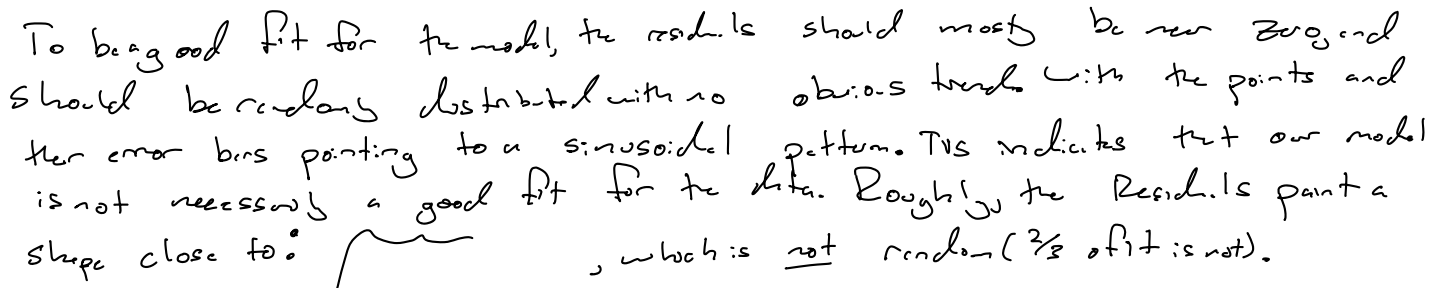 To be a good fit for the model, the residuals should mostly be near zero, and
should be randomly distributed with no obvious trends with the points and
their error bars pointing to a sinusoidal pattern. This indicates that our model
is not necessarily a good fit for the data. Roughly, the Residuals paint a
shape close to: , which is not random (2/3 of it is not).